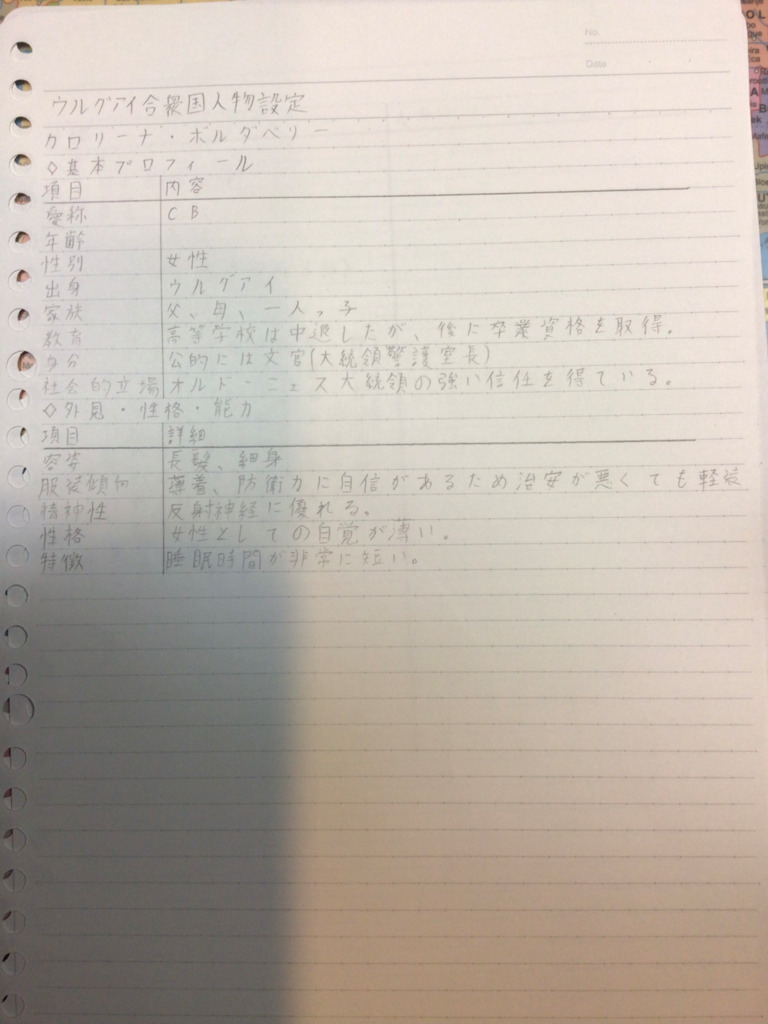 No.
Date
ウルグアイ合衆国人物設定
カロリーナ・ボルダベリー
◇基本プロフィール
項目 内容
愛称 CB
年齢
性別 女性
出身 ウルグアイ
家族 父、母、一人っ子
教育 高等学校は中退したが、後に卒業資格を取得。
身分 公的には文官(大統領警護室長)
社会的立場 オルドーニェス大統領の強い信任を得ている。
◇外見・性格・能力
項目 詳細
容姿 長髪、細身
服装傾向 薄着、防衛力に自信があるため治安が悪くても軽装
精神性 反射神経に優れる。
性格 女性としての自覚が薄い。
特徴 睡眠時間が非常に短い。